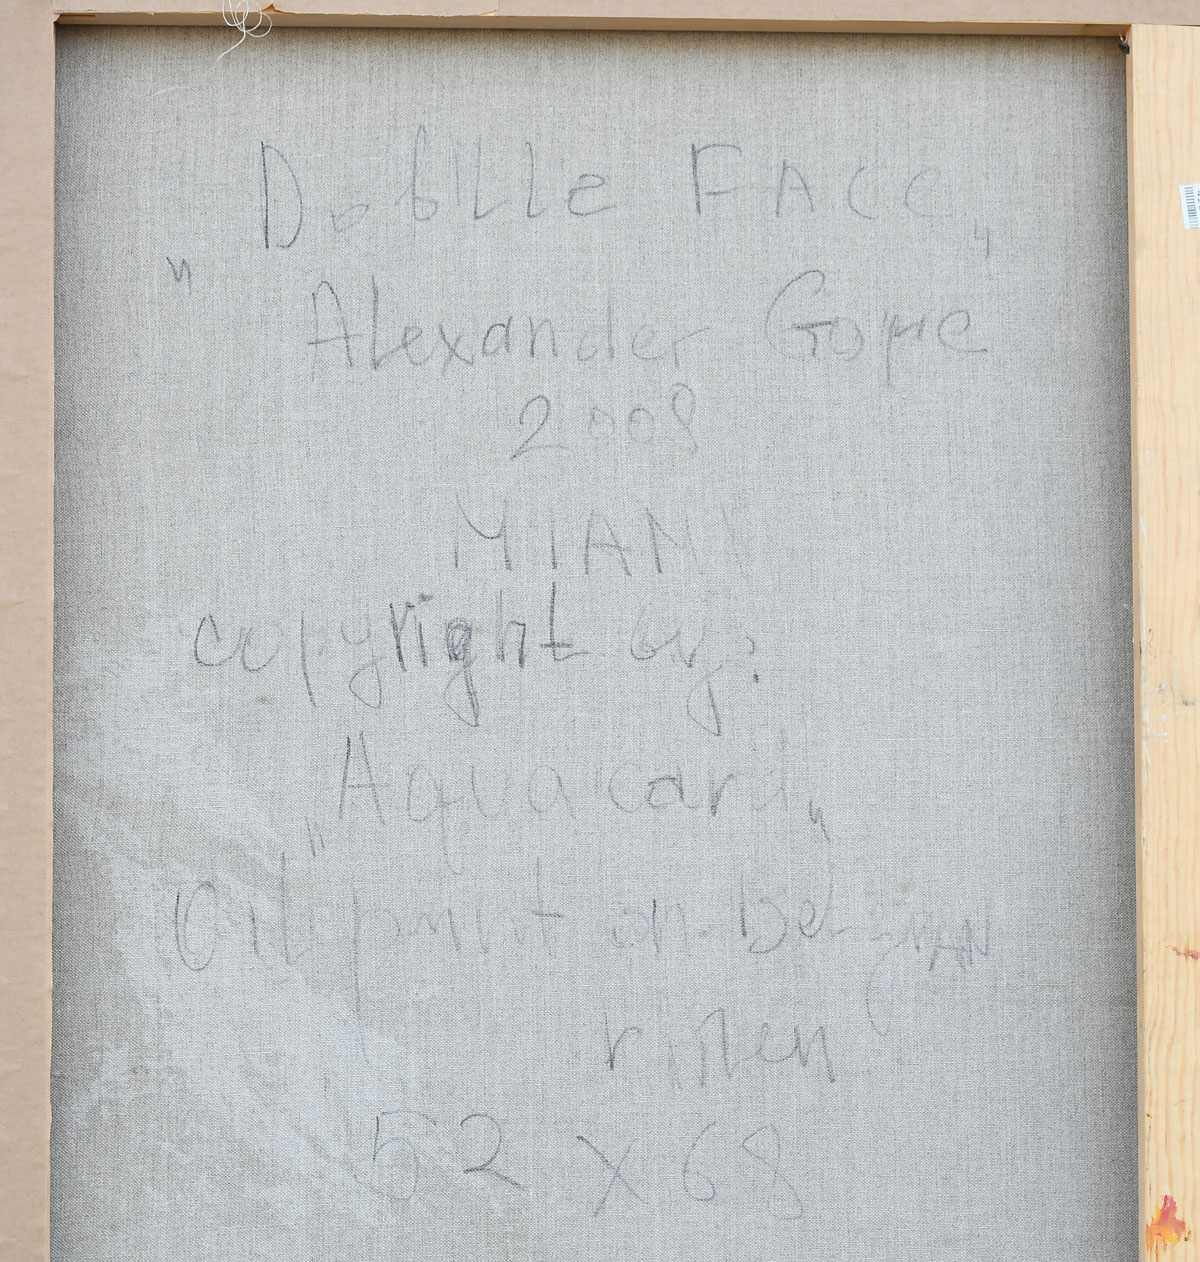 " Doblle FACE "
Alexander Gore
2008
MIAMI
copyright by:
"Aquacard"
Oil paint on belgian
linen
52 x 68